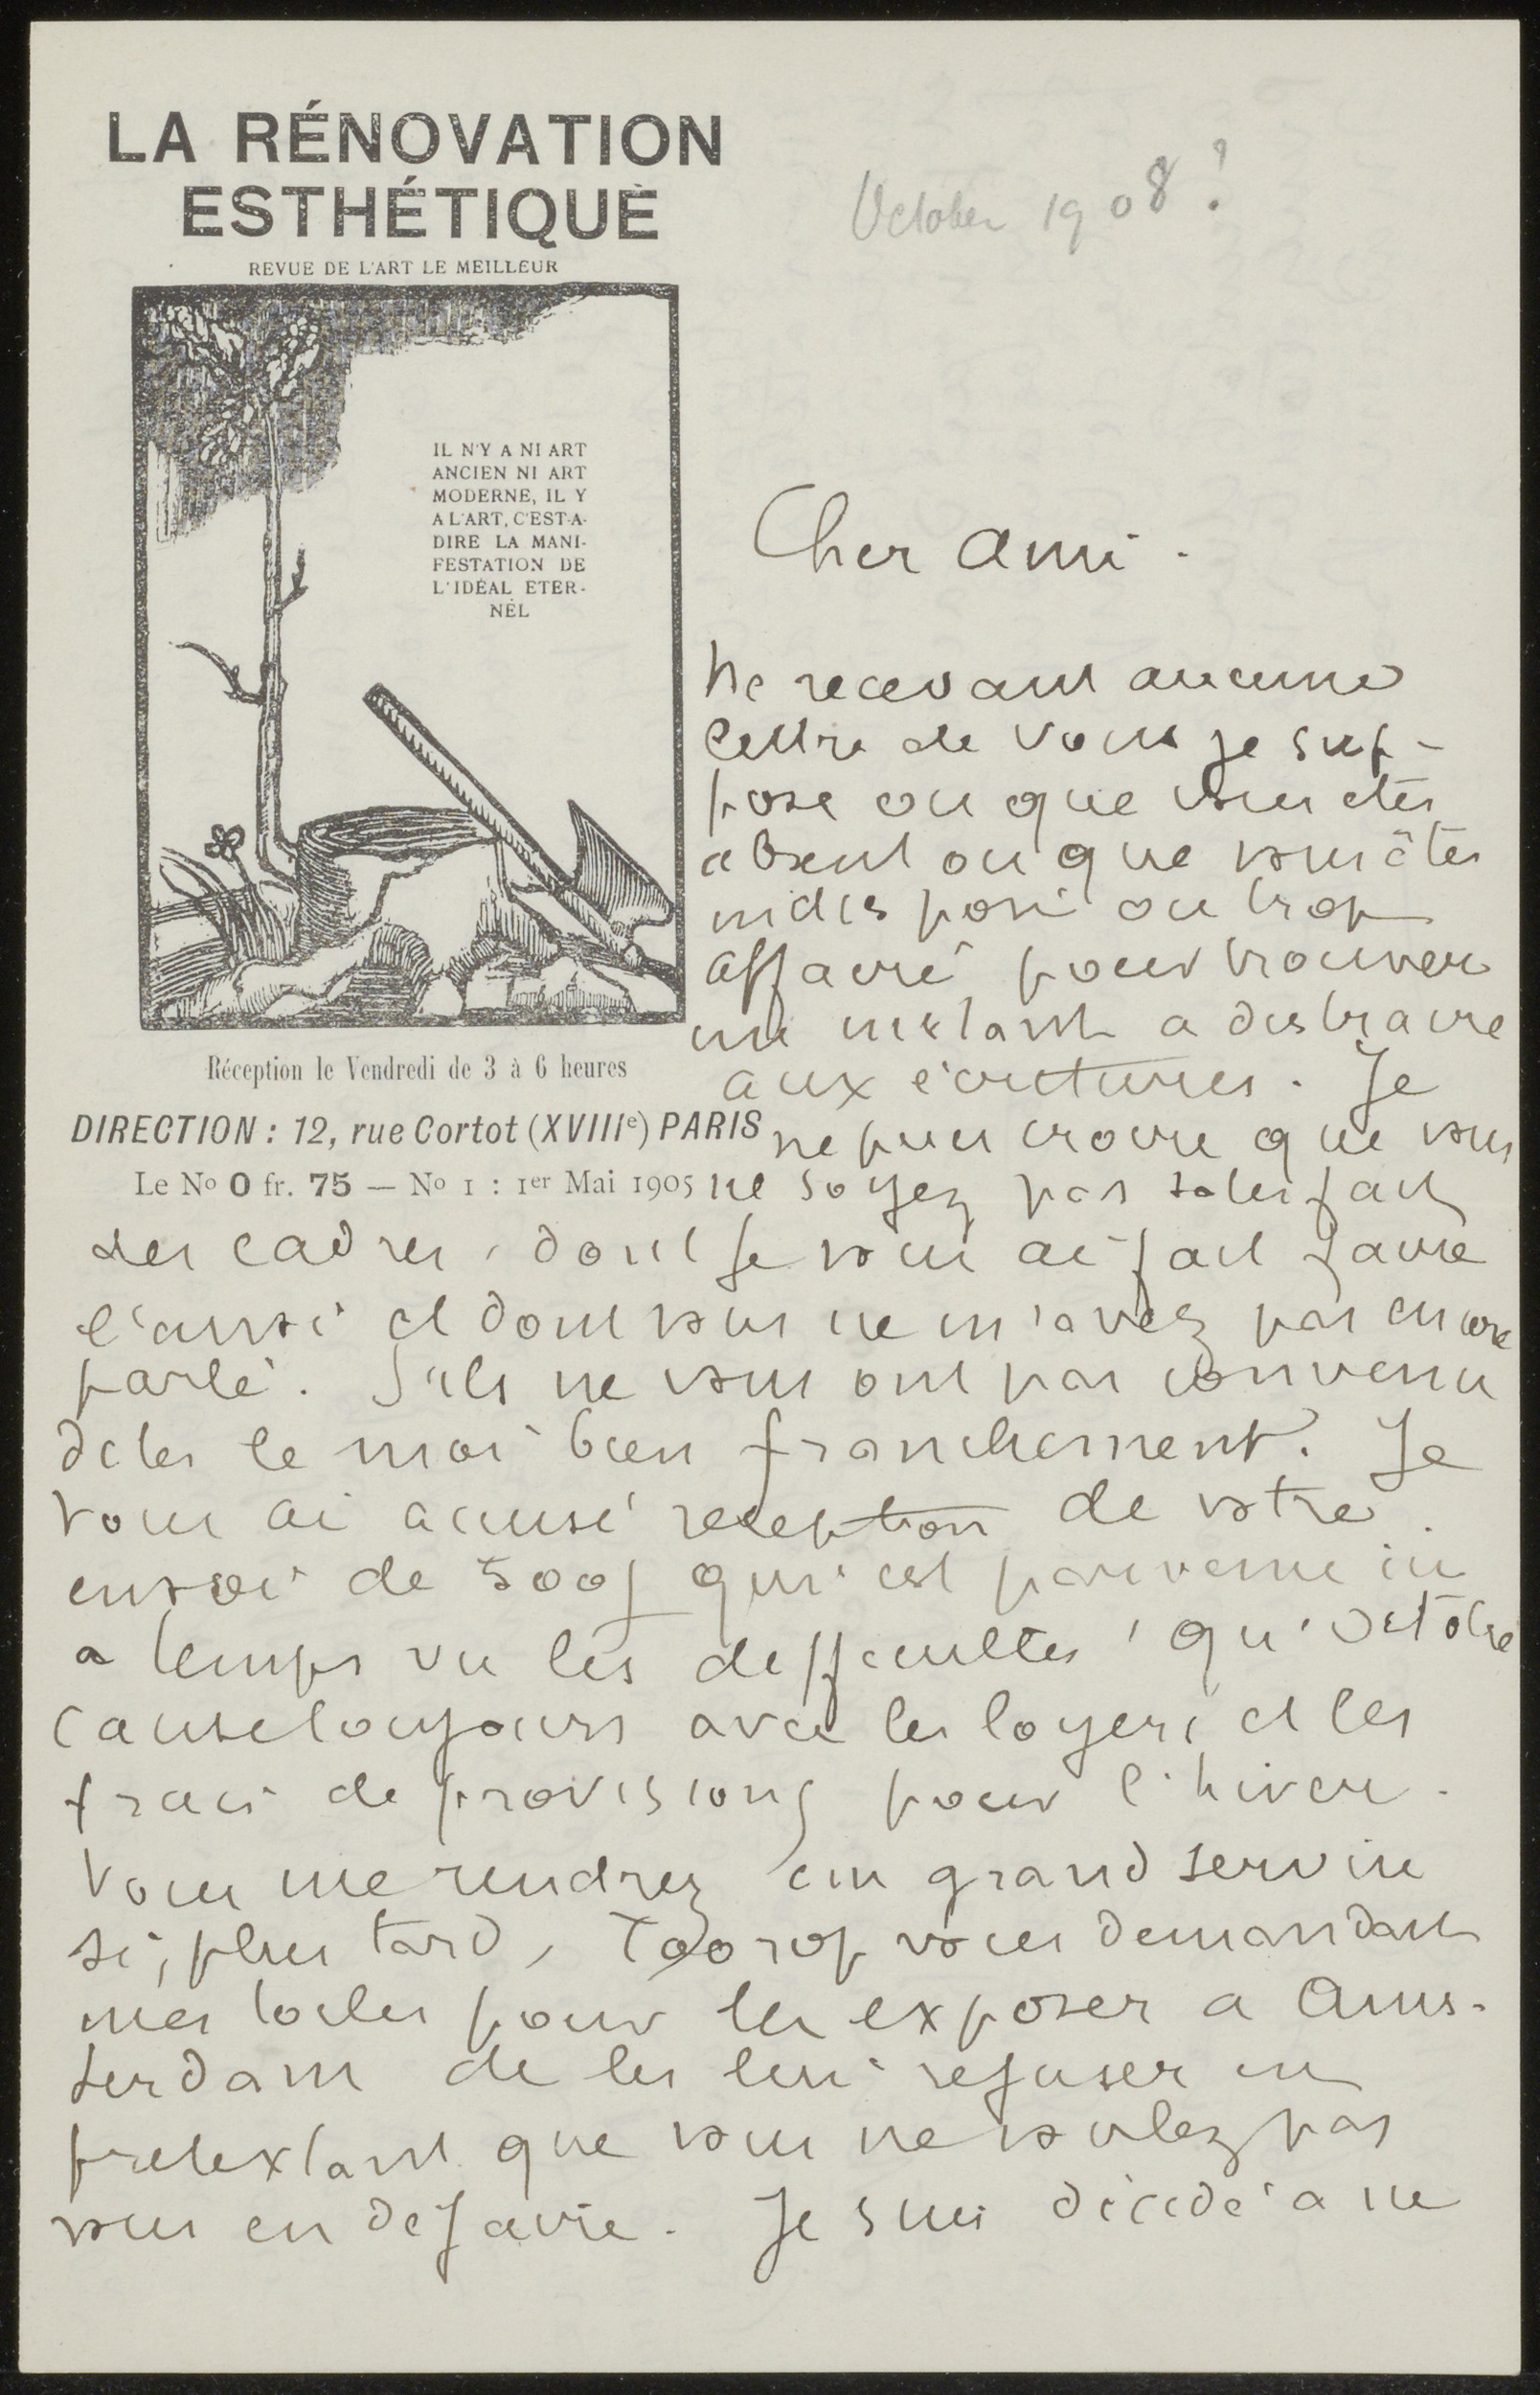 LA RÉNOVATION
ESTHÉTIQUE
REVUE DE L'ART LE MEILLEUR
October 1908?
IL N'Y A NI ART
ANCIEN NI ART
MODERNE, IL Y
A L'ART, C'EST-A-
DIRE LA MANI-
FESTATION DE
L'IDÉAL ETER-
NEL
Réception le Vendredi de 3 à 6 heures
DIRECTION : 12, rue Cortot (XVIIIe) PARIS
Le No 0 fr. 75 — No 1 : 1er Mai 1905
Cher Ami.
Ne recevant aucune
lettre de vous je sup-
pose ou que vous etes
absent ou que vous êtes
indisposé ou trop
affairé pour trouver
un instant a distraire
aux écritures. Je
ne puis croire que vous
ne soyez pas satisfait
des cadres, dont je vous ai fait faire
l'envoi et dont vous ne m'avez pas encore
parlé. S'ils ne vous ont pas convenu
dites le moi bien franchement. Je
vous ai accusé reception de votre
envoi de 500f qui est parvenu ici
a temps vu les difficultés qu'octobre
cause toujours avec les loyers et les
frais de provisions pour l'hiver.
Vous me rendrez un grand service
si, plus tard, Toorop vous demandant
mes toiles pour les exposer a Ams-
terdam de les lui refuser en
pretextant que vous ne voulez pas
vous en defaire. Je suis décidé a ne